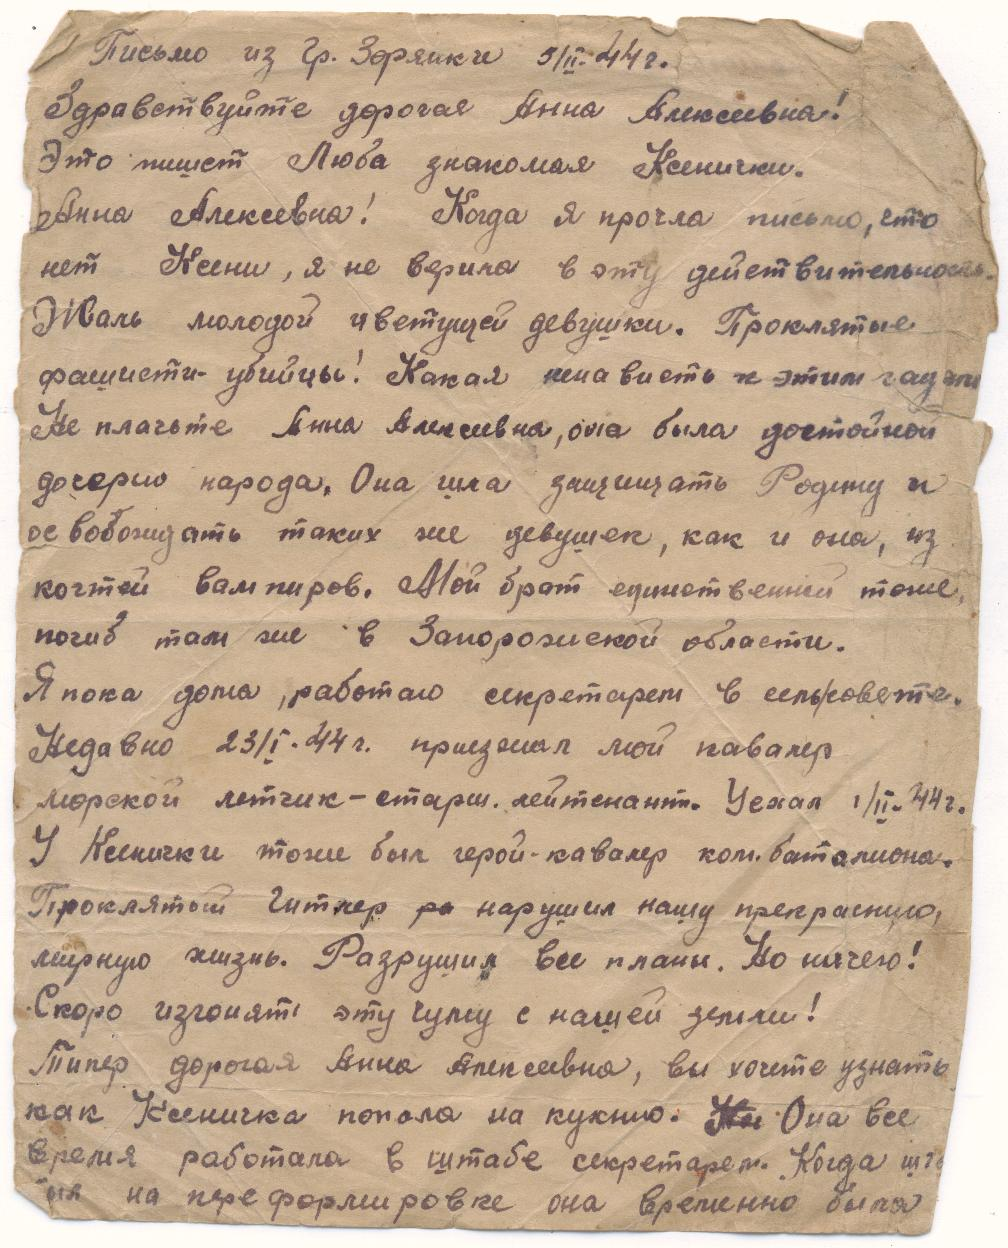 Письмо из Гр. Зорянки 5/II-44г.
Здравствуйте дорогая Анна Алексеевна!
Это пишет Люба знакомая Ксенички.
Анна Алексевна! Когда я прочла письмо, что
нет Ксени, я не верила в эту действительность.
Жаль молодой цветущей девушки. Проклятые
фашисты-убийцы! Какая ненависть к этим гадам
Не плачьте Анна Алексеевна, она была достойной
дочерью народа. Она шла защищать Родину и
освобождать таких же девушек, как и она, из
когтей вампиров. Мой брат единственный тоже,
погиб там же в Запорожской области.
Я пока дома, работаю секретарем в сельсовете.
Недавно 23/I-44г. приезжал мой кавалер
морской летчик-старш. лейтенант. Уехал 1/II-44г.
У Ксенички тоже был герой-кавалер ком. баталиона.
Проклятый Гитлер нарушил нашу прекрасную,
мирную жизнь. Разрушил все планы. Но ничего!
Скоро изгонят эту чуму с нашей земли!
Типер дорогая Анна Алексеевна, вы хочете узнать
как Ксеничка попала на кухню. Она все
время работала в штабе секретарем. Когда
на переформировке она временно была